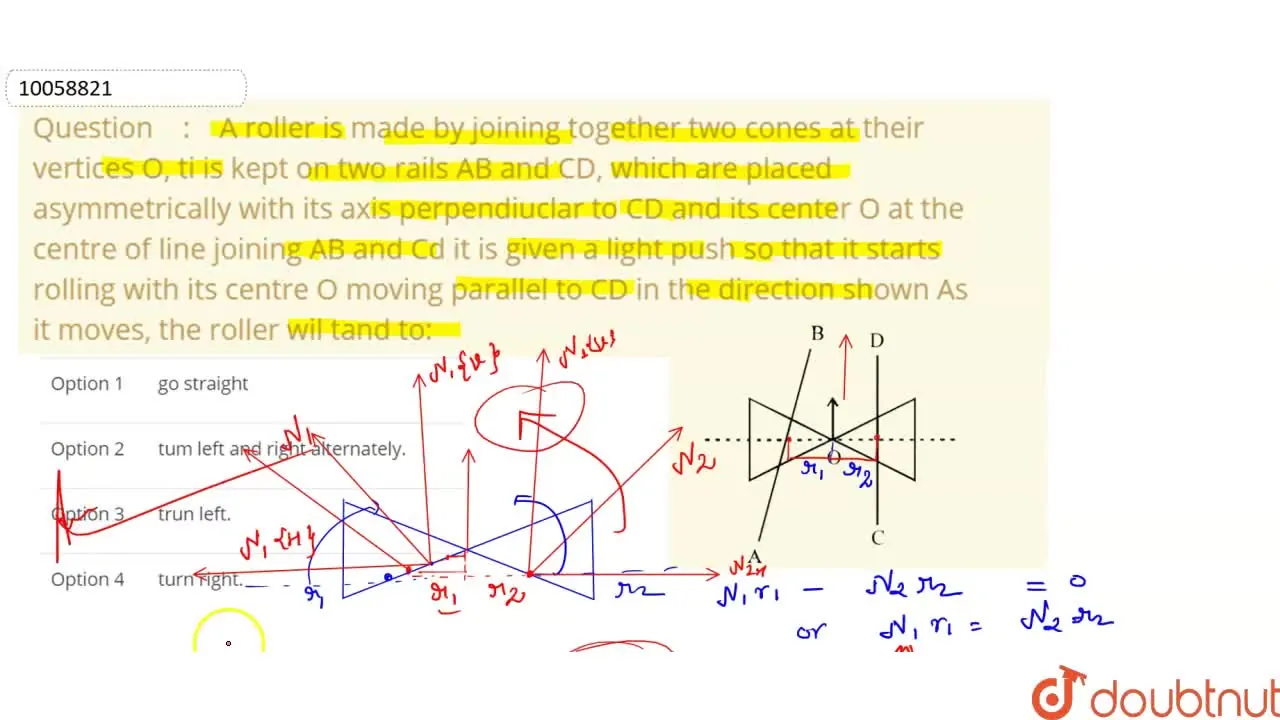 10058821
Question : A roller is made by joining together two cones at their
vertices O, ti is kept on two rails AB and CD, which are placed
asymmetrically with its axis perpendiuclar to CD and its center O at the
centre of line joining AB and Cd it is given a light push so that it starts
rolling with its centre O moving parallel to CD in the direction shown As
it moves, the roller wil tand to:
Option 1 go straight
Option 2 tum left and right alternately.
Option 3 trun left.
Option 4 turn right.
N1{V}
N2{V}
N1
N2
N1{H}
r1
r1
r2
r2
N2H
B
D
O
r1
r2
A
C
N1 r1 - N2 r2 = 0
or N1 r1 = N2 r2
doubtnut